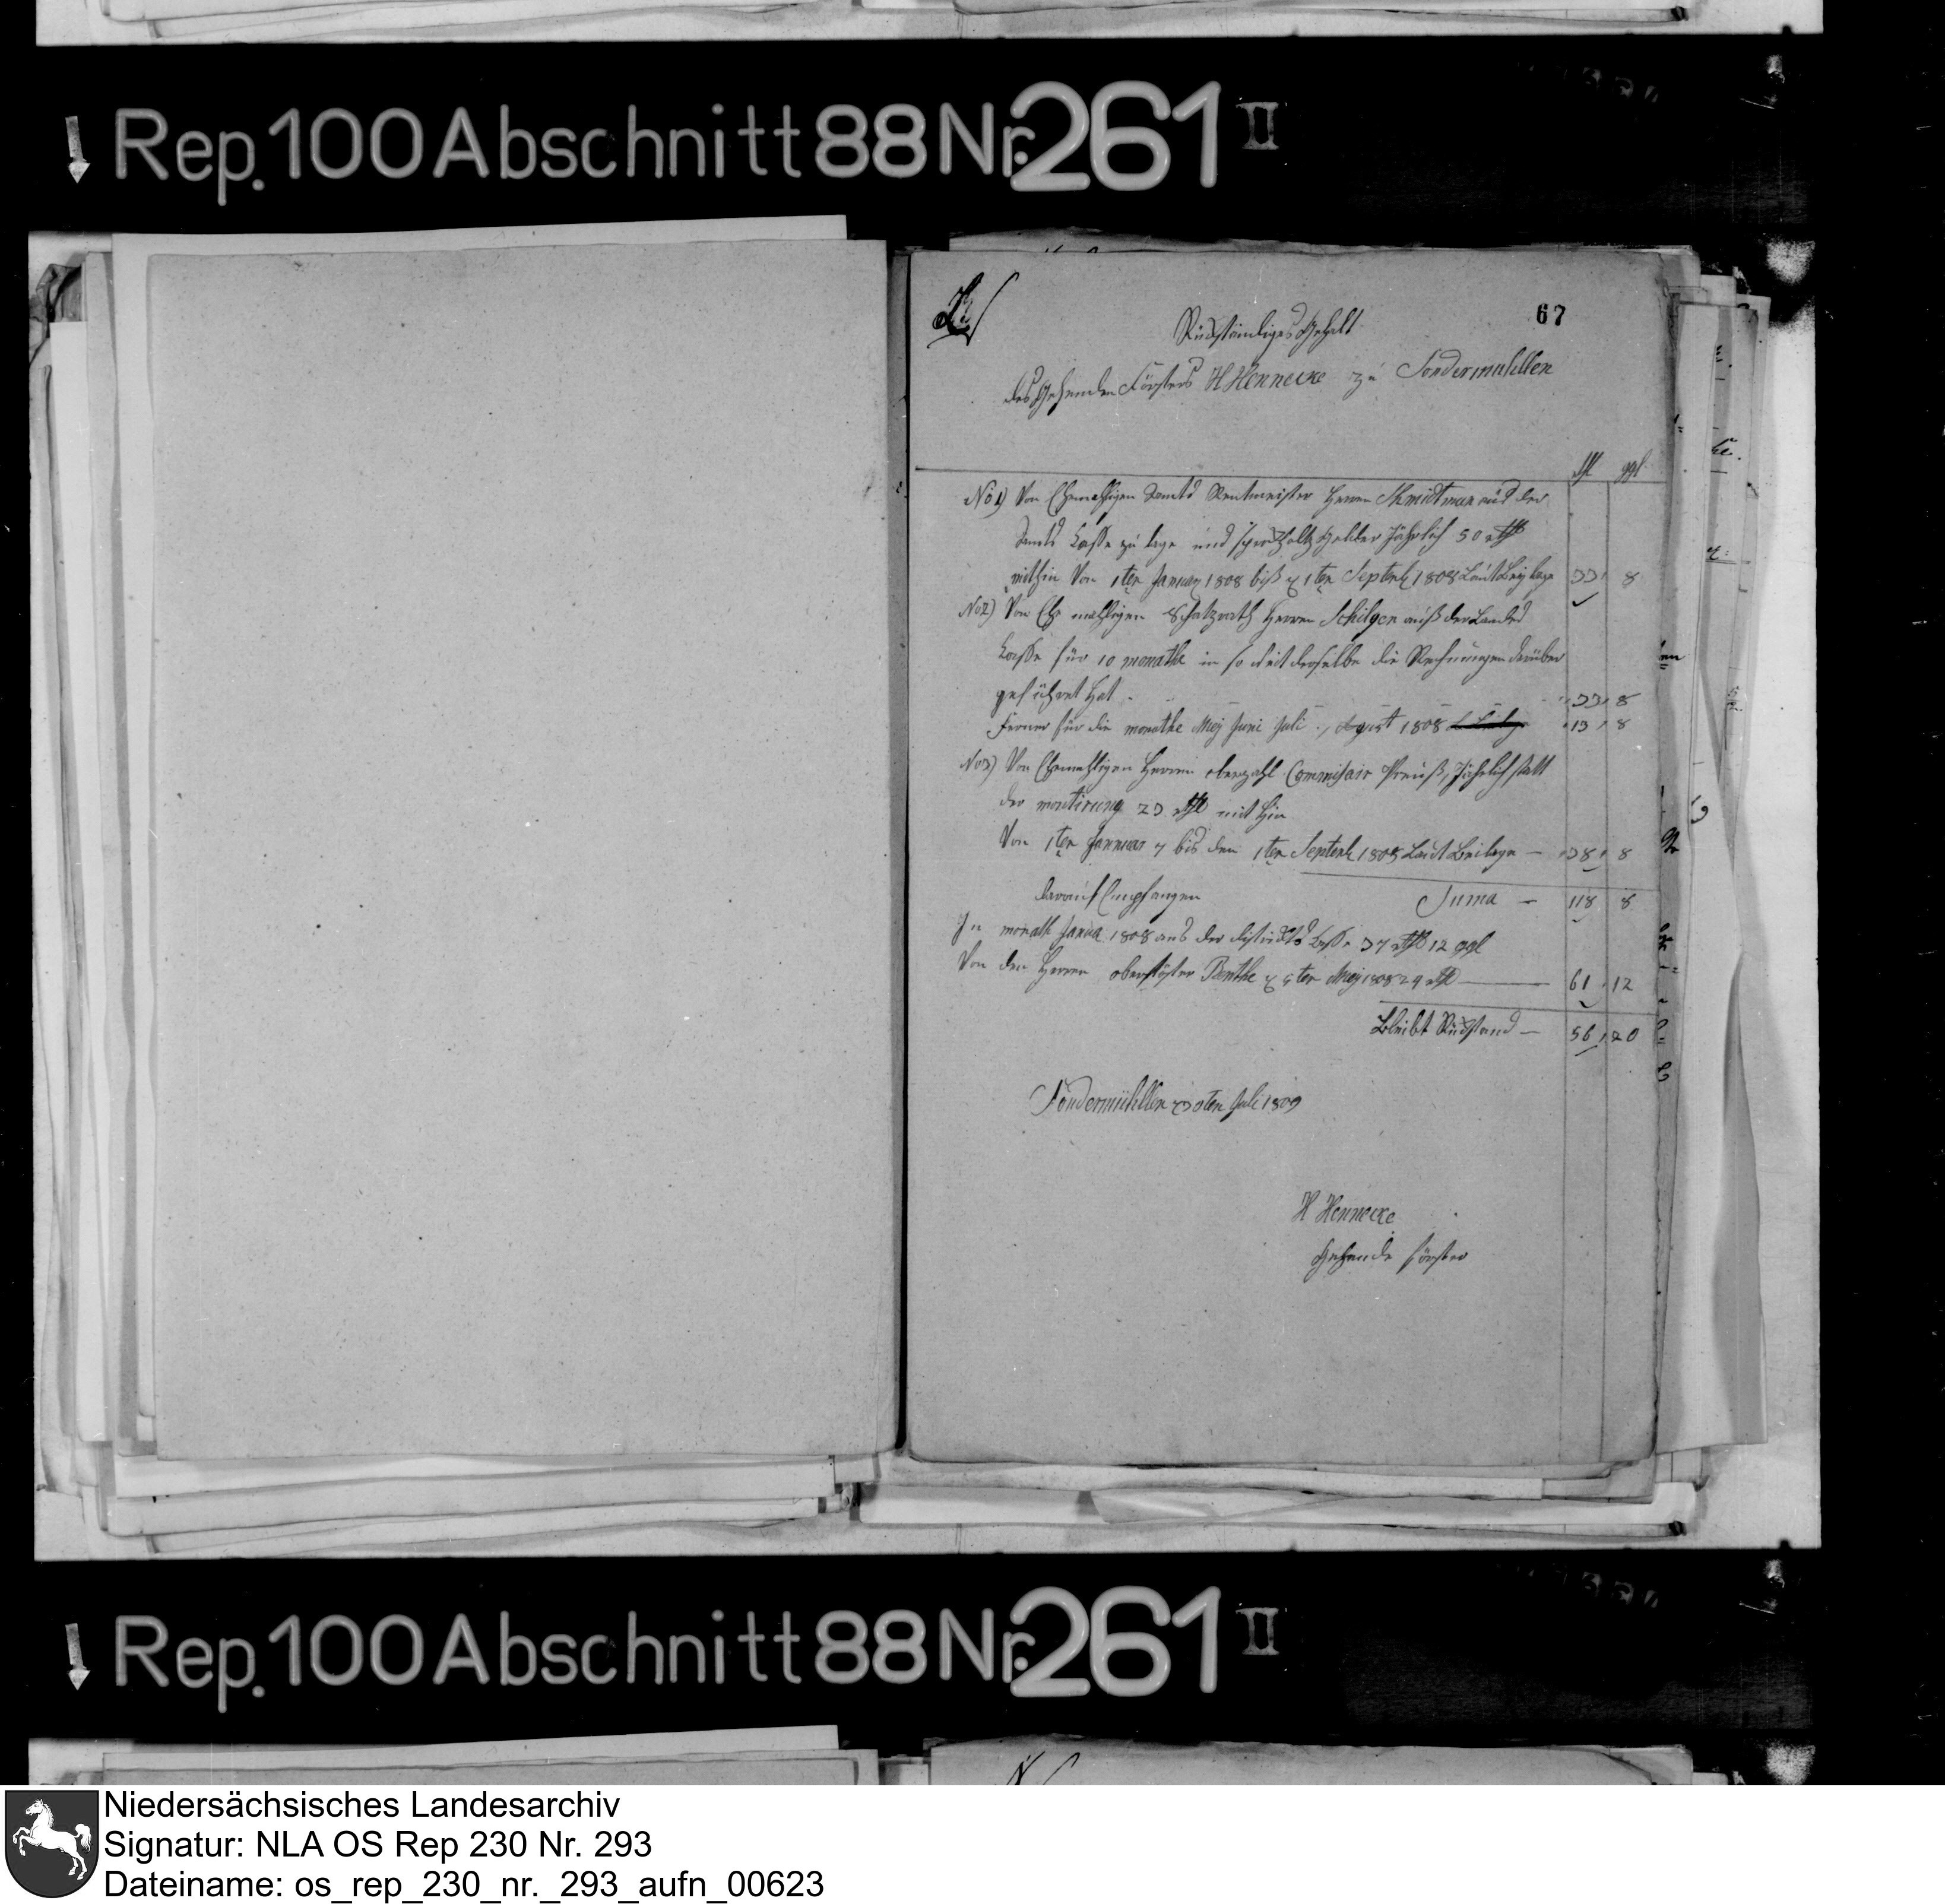 Rep. 100 Abschnitt 88 Nr. 261 II
67
Rückständiges Gehalt
des Gehenden Försters H Hennecke zu Sondermuhllen
ggl
No 1) Von Ehemahligen Amts Rentmeister Herren Schmidtman aus der
Amts Casse zu lage und Holtz Gelder Jährlich 50 rthl
mithin Von 1ten January 1808 biß d 1ten Septenb 1808 Laut Beylage 33 8
No 2) Von Ehe mahligen Schatzrath Herren Schilgen auß der Landes
Casse für 10 monathe in so weit derselbe die Rechnungen darüber
geführet hat - 33 8
Ferner für die monathe Mey Juni Juli August 1808 13 8
No 3) Von Ehemahligen Herren oberzahl Commisair Preuß, Jährlich statt
der montirung 23 rthl mit hin
Von 1ten Januar 7 bis den 1ten Septenb 1808 Laut Beilage - 38 8
darauf Empfangen Suma - 118 8
In monath Janua 1808 aus der districkts Casse 37 rthl 12 ggl
Von den Herren oberföster Benthe d 9ten Mey 1808 24 rthl 61 12
Bleibt Rückstand - 56 20
Sondermühllen 30ten Juli 1809
H Hennecke
Gehende Förster
Rep. 100 Abschnitt 88 Nr. 261 II
Niedersächsisches Landesarchiv
Signatur: NLA OS Rep 230 Nr. 293
Dateiname: os_rep_230_nr._293_aufn_00623